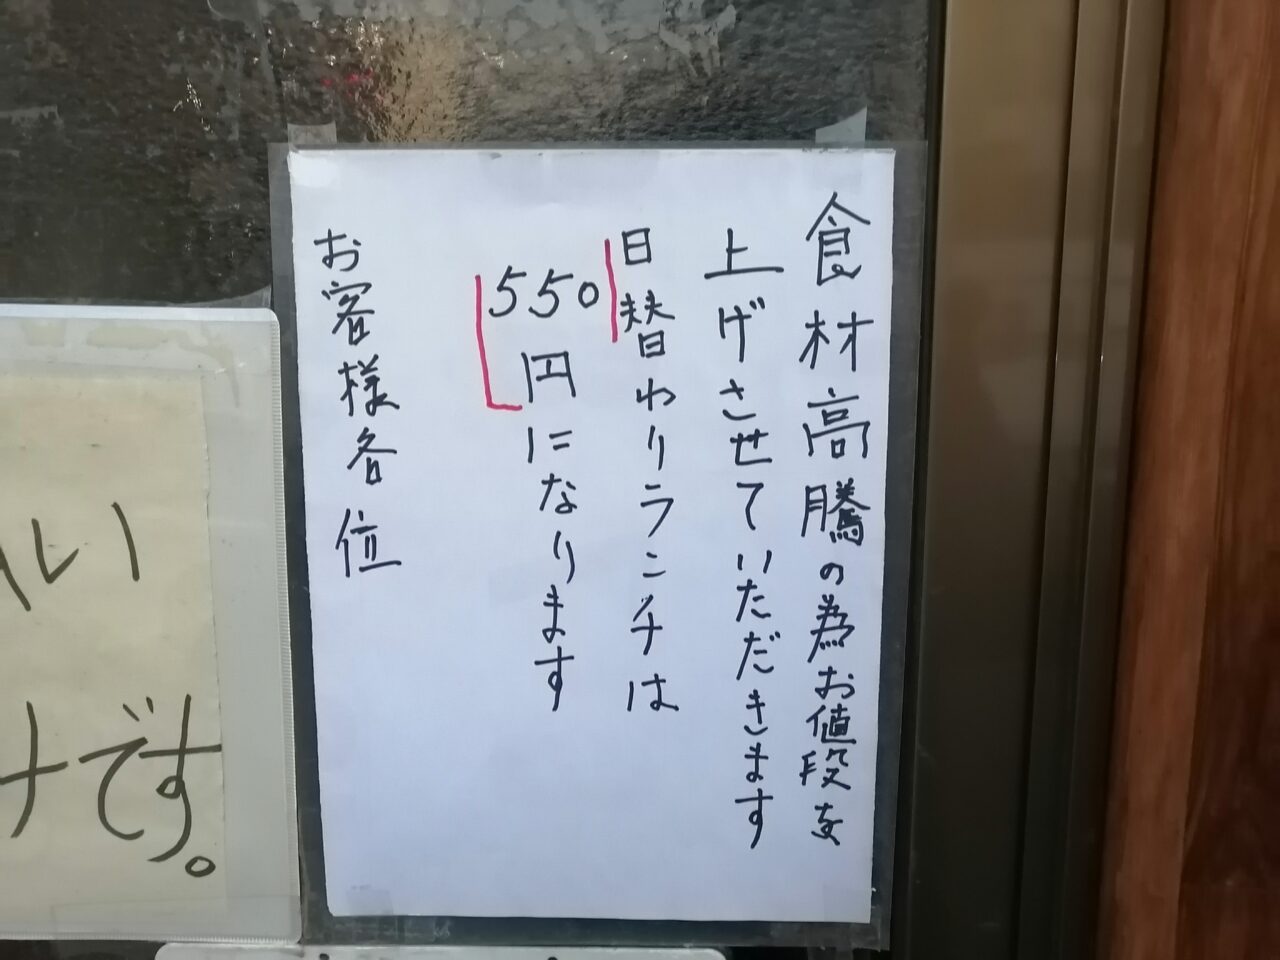 食材高騰の為お値段を
上げさせていただきます
日替わりランチは
550
円になります
お客様各位
い
です。